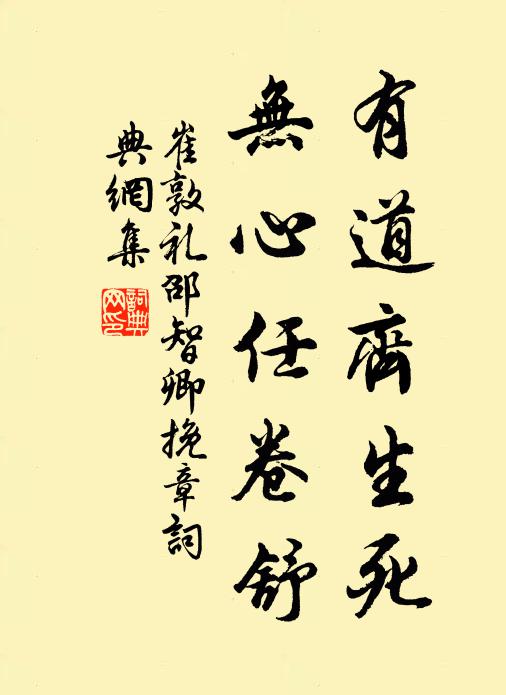 有道齊生死
無心任卷舒
崔敦礼邵智卿挽章詞
典網集
詞典
网印